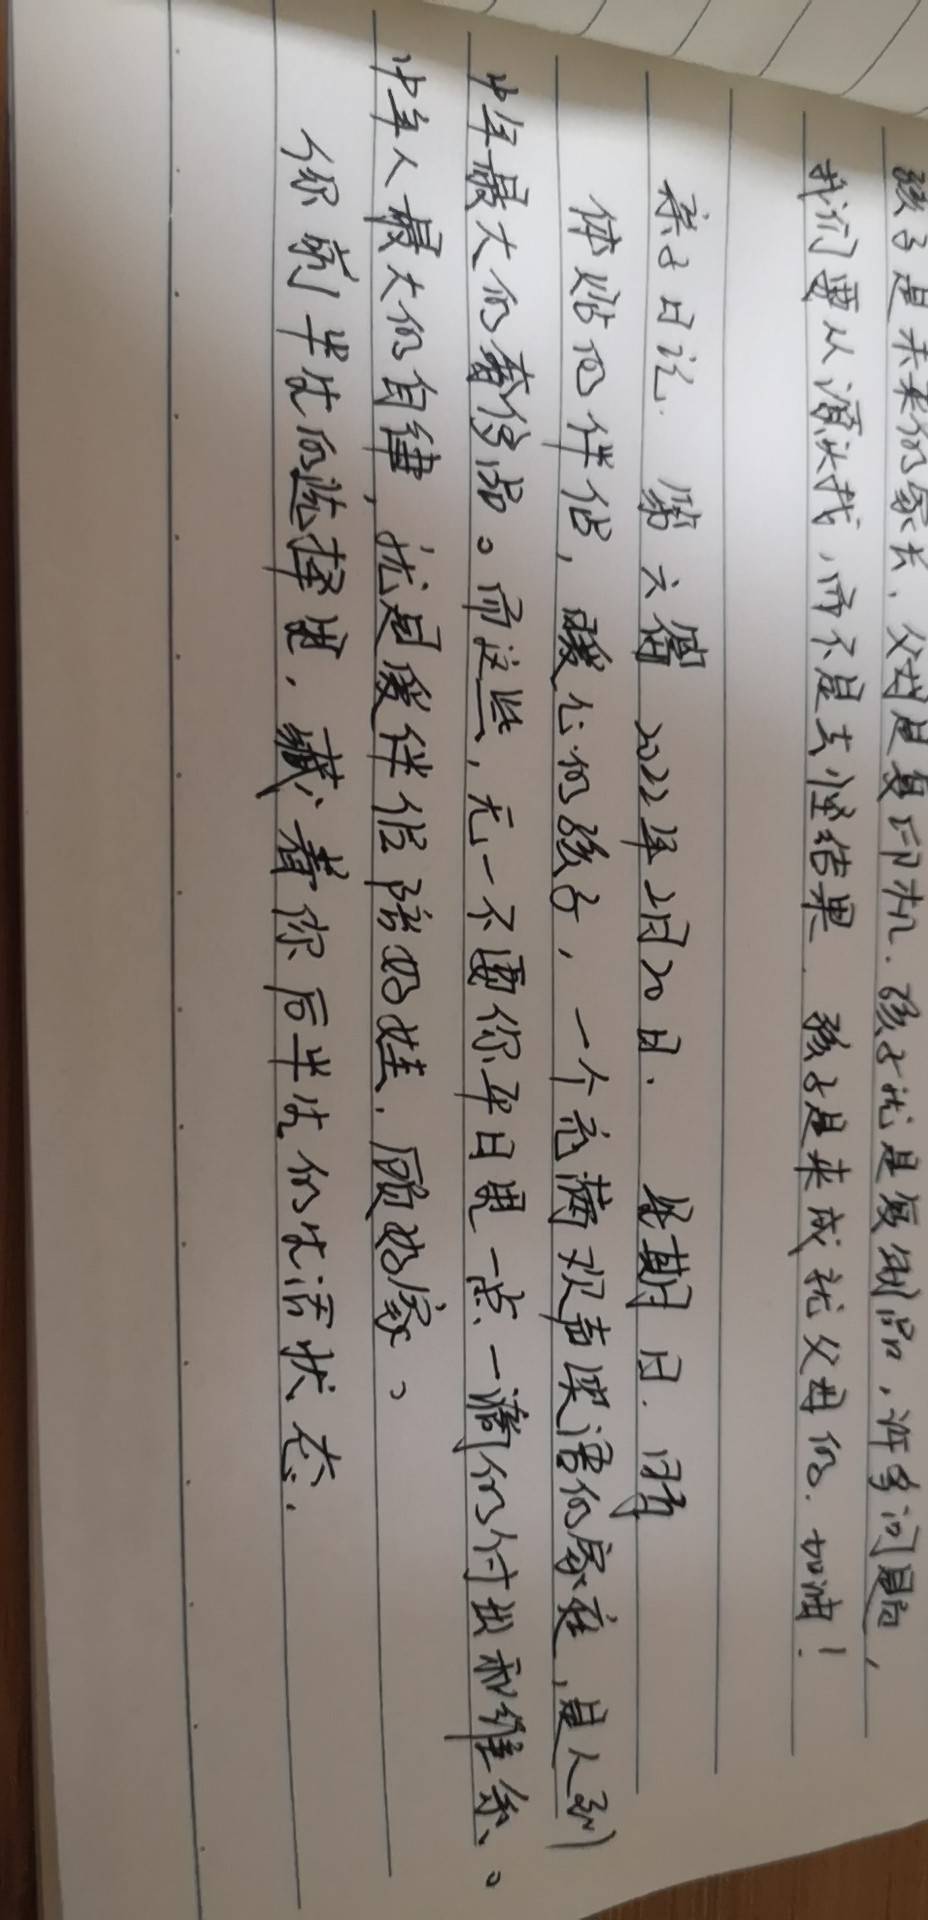 孩子是未来的家长、父母是复印机.孩子就是复制品,许多问题,
我们要从源头找,而不是去怪结果.孩子是来成就父母的.加油!
亲子日记. 第六篇 2022年2月20日. 星期日.晴
体贴的伴侣,暖心的孩子,一个充满欢声笑语的家庭,是人到
中年最大的奢侈品。而这些,无一不需你平日里一点一滴的付出和维系。
中年人最大的自律,就是爱伴侣陪好娃.顾好家。
你前半生的选择里,藏着你后半生的生活状态.